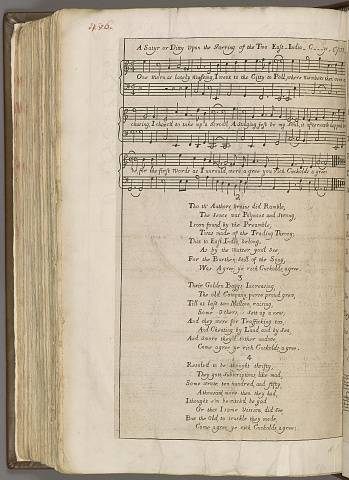 486.
A Satyr or Ditty Upon the Jarring of the Two East-India C
One Morn as lately Musing, I went to the Citty to Poll, where Numbers
chusing, I chanc'd to take up a Scrowl, A Singing
for the first Words as I unroul'd, were agree you Rich Cuckolds agree
2
Tho th' Authors brains did Ramble,
The Sence was Poignant and Strong,
I soon found by the Preamble,
Twas made of the Trading Throng;
That to East India belong,
As by the matter you'l See,
For the Burthen still of the Song,
Was Agree, ye rich Cuckolds agree.
3
Their Golden Baggs Increasing,
The old Company purse proud grew,
Till at last two Millons raising,
Some others, sett up a new;
And they were for Trafficking too,
And Cheating by Land and by Sea,
And Swore they'd t'other undoe
Come agree ye rich Cuckolds agree.
4
Resolv'd to be thought thrifty,
They got Subscriptions like mad,
Some wrote ten hundred, and fifty,
A thousand more then they had,
I thought em bewitch'd be gad
Or that some Vission did See
But the Old to trouble they made,
Come agree, ye rich Cuckolds agree: